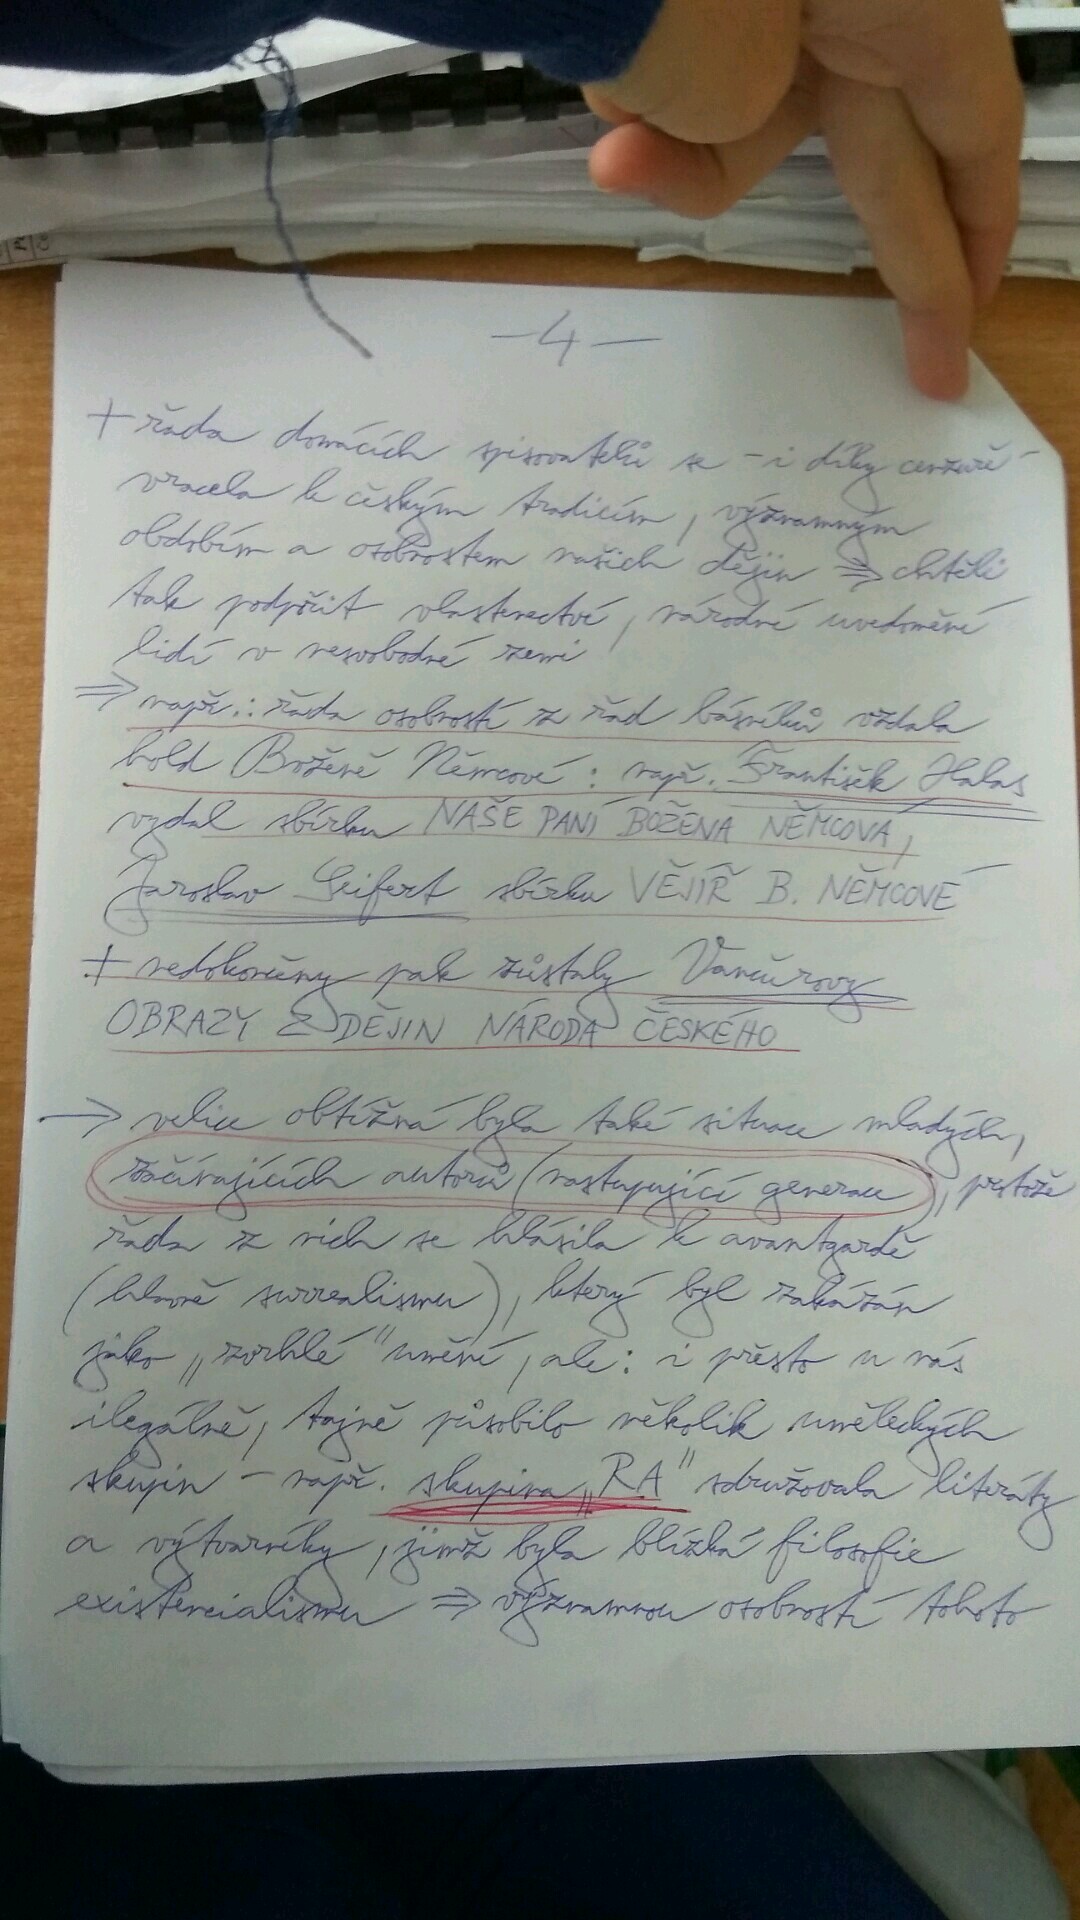 —4—
+ řada domácích spisovatelů se – i díky cenzuře –
vracela k českým tradicím, významným
obdobím a osobnostem našich dějin ⇒ chtěli
tak podpořit vlastenectví, národní uvědomění
lidí v nesvobodné zemi
⇒ např.: řada osobností z řad básníků vzdala
hold Boženě Němcové: např. František Halas
vydal sbírku NAŠE PANÍ BOŽENA NĚMCOVÁ,
Jaroslav Seifert sbírku VĚJÍŘ B. NĚMCOVÉ
+ nedokončeny pak zůstaly Vančurovy
OBRAZY Z DĚJIN NÁRODA ČESKÉHO
→ velice obtížná byla také situace mladých,
začínajících autorů (nastupující generace), protože
řada z nich se hlásila k avantgardě
(hlavně surrealismu), který byl zakázán
jako „zvrhlé" umění, ale: i přesto u nás
ilegálně, tajně působilo několik uměleckých
skupin – např. skupina „RA" sdružovala literáty
a výtvarníky, jimž byla blízká filosofie
existencialismu ⇒ významnou osobností tohoto